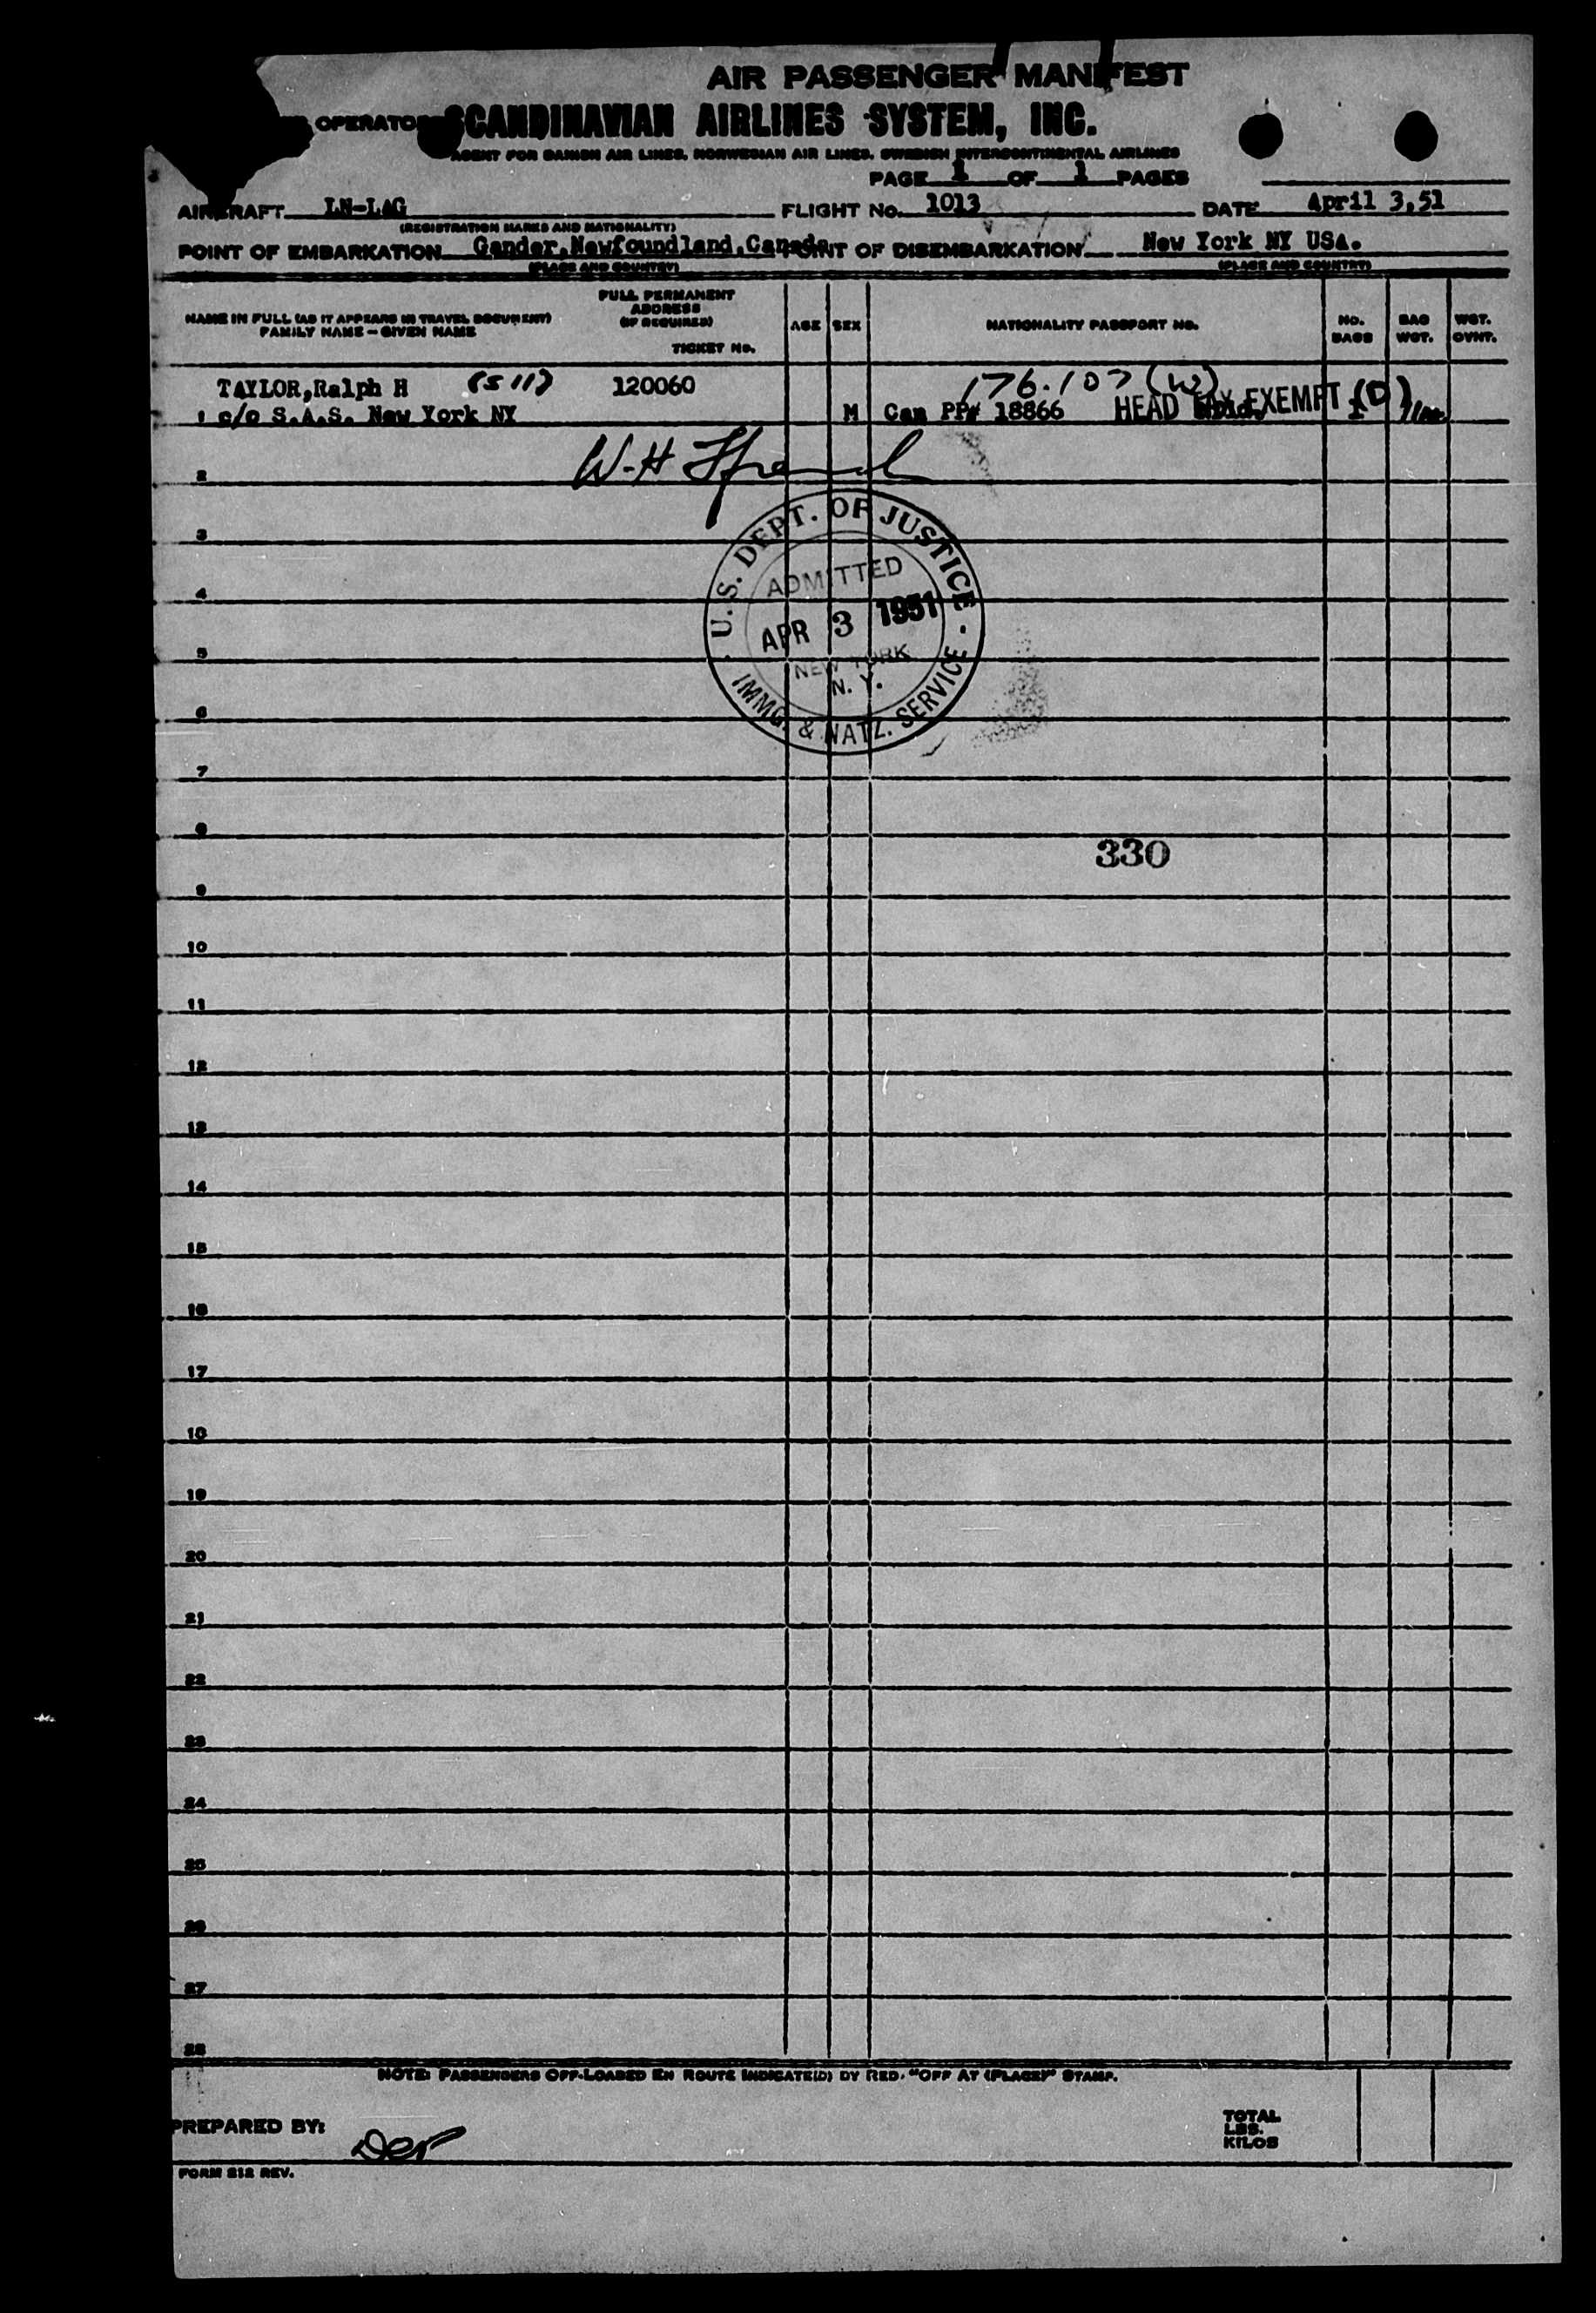 AIR PASSENGER MANIFEST
OPERATOR SCANDINAVIAN AIRLINES SYSTEM, INC.
AGENT FOR DANISH AIR LINES, NORWEGIAN AIR LINES, SWEDISH INTERCONTINENTAL AIRLINES
PAGE 1 OF 1 PAGES
AIRCRAFT LN-LAG FLIGHT No. 1013 DATE April 3,51
(REGISTRATION MARKS AND NATIONALITY)
POINT OF EMBARKATION Gander,Newfoundland,Canada POINT OF DISEMBARKATION New York NY USA.
(PLACE AND COUNTRY) (PLACE AND COUNTRY)
NAME IN FULL (AS IT APPEARS IN TRAVEL DOCUMENT) FAMILY NAME – GIVEN NAME
FULL PERMANENT ADDRESS (IF REQUIRED) TICKET No.
AGE SEX NATIONALITY PASSPORT NO. NO. BAGS BAG WGT. WGT. OVWT.
TAYLOR,Ralph H (511) 120060 176.107 (W)
1 c/o S.A.S. New York NY M Can PP# 18866 HEAD TAX EXEMPT (D)
W-H
2
3
U.S. DEPT. OF JUSTICE
ADMITTED
4
APR 3 1951
5
NEW YORK
N. Y.
IMMG. & NATZ. SERVICE
6
7
8
330
9
10
11
12
13
14
15
16
17
18
19
20
21
22
23
24
25
26
27
28
NOTE: PASSENGERS OFF-LOADED EN ROUTE INDICATE(D) BY RED "OFF AT (PLACE)" STAMP.
PREPARED BY: Der
TOTAL
LBS.
KILOS
FORM 212 REV.